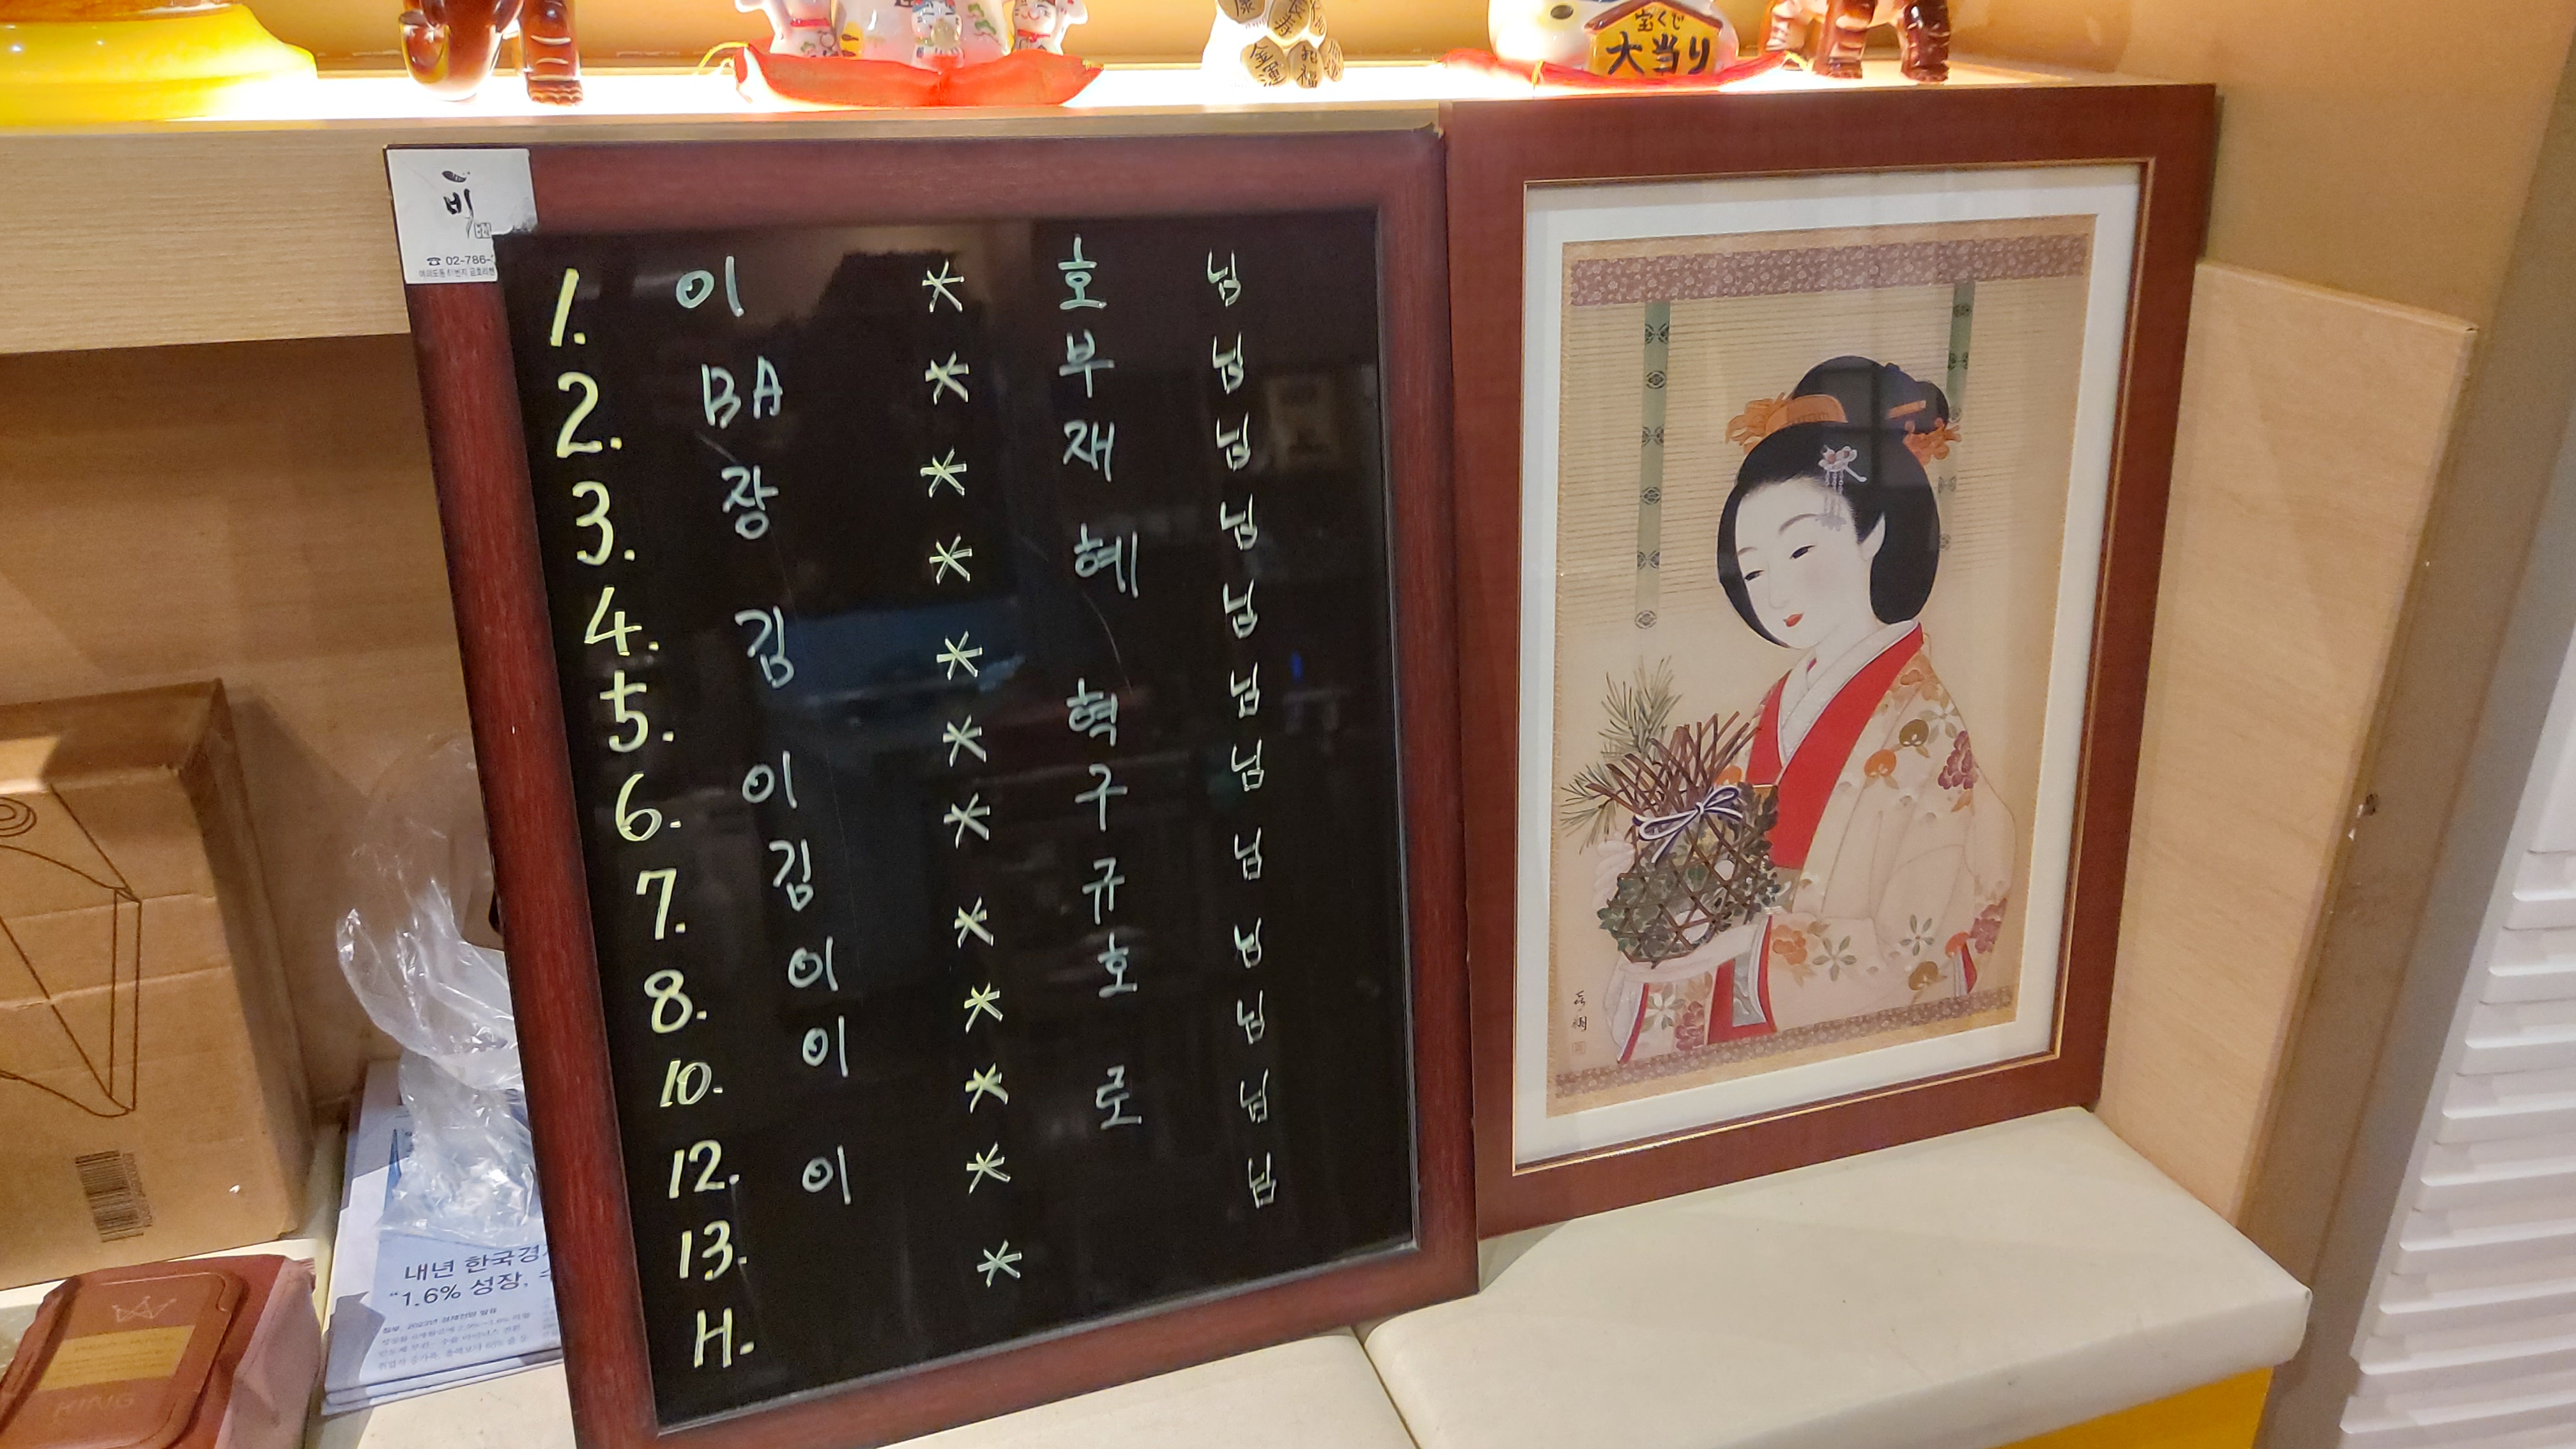 宝くじ
大当り
비
☎ 02-786-
1. 이 * 호 님
2. BA * 부 님
3. 장 * 재 님
4. 김 * 혜 님
5. * 님
6. 이 * 혁 님
7. 김 * 구 님
8. 이 * 규 님
10. 이 * 호 님
12. 이 * 로 님
13. * 님
H. * 님
내년 한국경
"1.6% 성장,
KING